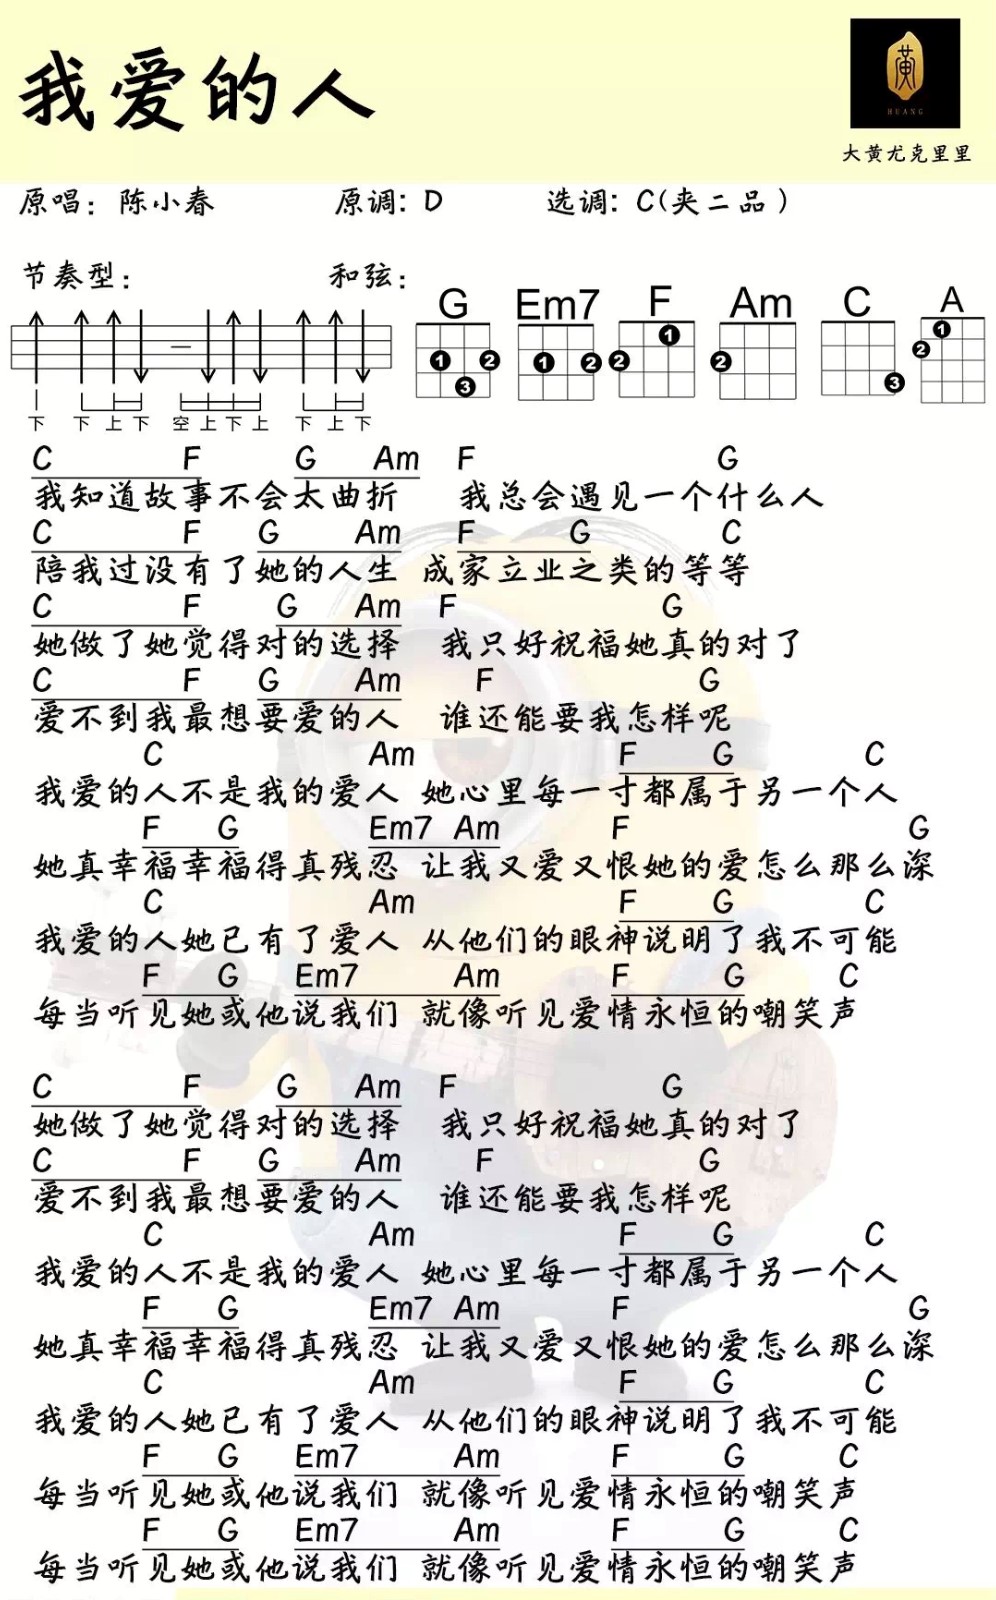 我爱的人
黄
HUANG
大黄尤克里里
原唱：陈小春 原调：D 选调：C(夹二品）
节奏型： 和弦：
G Em7 F Am C A
1 2 3 1 2 1 2 2 3 1 2
下 下 上 下 空 上 下 上 下 上 下
C F G Am F G
我知道故事不会太曲折 我总会遇见一个什么人
C F G Am F G C
陪我过没有了她的人生 成家立业之类的等等
C F G Am F G
她做了她觉得对的选择 我只好祝福她真的对了
C F G Am F G
爱不到我最想要爱的人 谁还能要我怎样呢
C Am F G C
我爱的人不是我的爱人 她心里每一寸都属于另一个人
F G Em7 Am F G
她真幸福幸福得真残忍 让我又爱又恨她的爱怎么那么深
C Am F G C
我爱的人她已有了爱人 从他们的眼神说明了我不可能
F G Em7 Am F G C
每当听见她或他说我们 就像听见爱情永恒的嘲笑声
C F G Am F G
她做了她觉得对的选择 我只好祝福她真的对了
C F G Am F G
爱不到我最想要爱的人 谁还能要我怎样呢
C Am F G C
我爱的人不是我的爱人 她心里每一寸都属于另一个人
F G Em7 Am F G
她真幸福幸福得真残忍 让我又爱又恨她的爱怎么那么深
C Am F G C
我爱的人她已有了爱人 从他们的眼神说明了我不可能
F G Em7 Am F G C
每当听见她或他说我们 就像听见爱情永恒的嘲笑声
F G Em7 Am F G C
每当听见她或他说我们 就像听见爱情永恒的嘲笑声